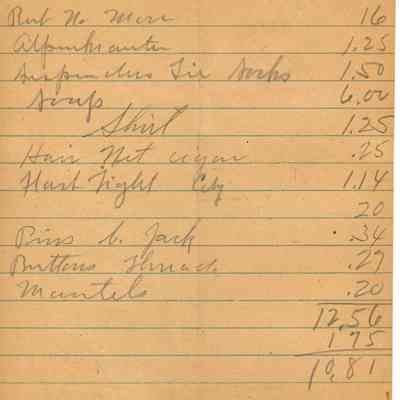 Rub No More 16
Alpenkrauter 1.25
Suspenders Tie Socks 1.50
Soap 6.00
Shirt 1.25
Hair Net cigar .25
Flash Light Cig 1.14
20
Pins b. Jack .34
Buttons Thread .27
Mantels .20
12.56
1 75
10.81